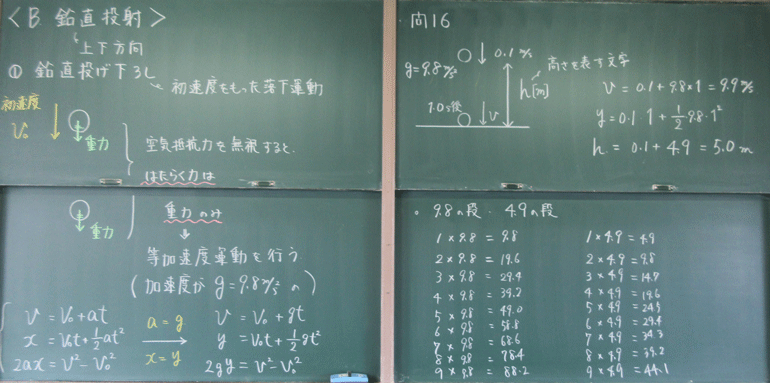 〈B 鉛直投射〉
上下方向
① 鉛直投げ下ろし
初速度をもった落下運動
初速度
V₀
重力
空気抵抗力を無視すると、
はたらく力は
重力
重力のみ
等加速度運動を行う
(加速度が g=9.8m/s² の)
v = v₀+at
x = v₀t+1/2at²
2ax = v²-v₀²
a=g
x=y
v = v₀+gt
y = v₀t+1/2gt²
2gy = v²-v₀²
問16
0.1m/s
g=9.8m/s²
高さを表す文字
h[m]
1.0s後
v
v = 0.1+9.8×1 = 9.9m/s
y = 0.1·1+1/2·9.8·1²
h = 0.1+4.9 = 5.0m
。9.8の段・4.9の段
1×9.8 = 9.8
2×9.8 = 19.6
3×9.8 = 29.4
4×9.8 = 39.2
5×9.8 = 49.0
6×9.8 = 58.8
7×9.8 = 68.6
8×9.8 = 78.4
9×9.8 = 88.2
1×4.9 = 4.9
2×4.9 = 9.8
3×4.9 = 14.7
4×4.9 = 19.6
5×4.9 = 24.5
6×4.9 = 29.4
7×4.9 = 34.3
8×4.9 = 39.2
9×4.9 = 44.1